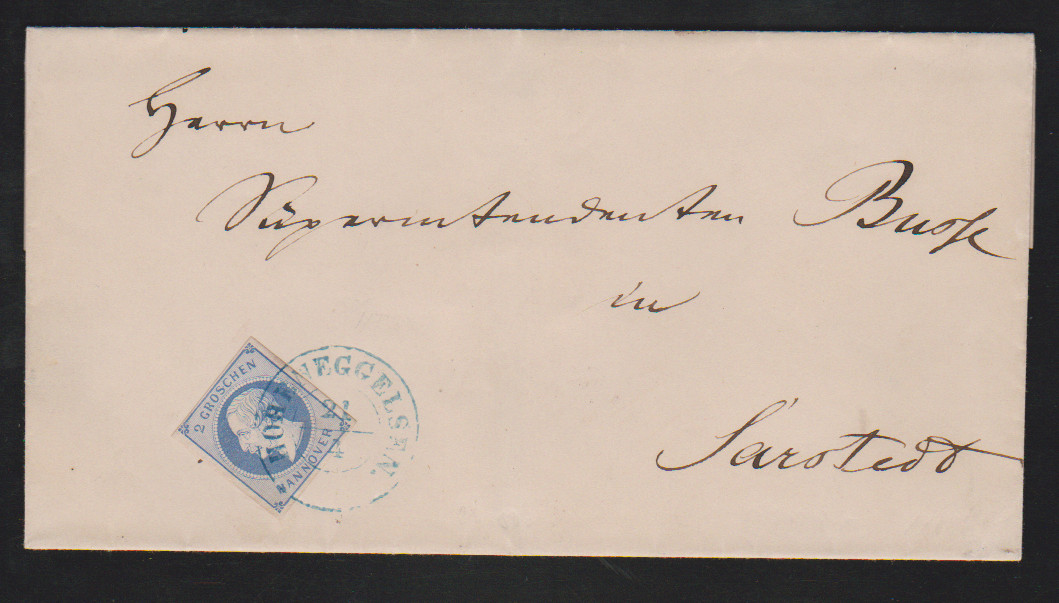 Herrn
Superintendenten Busse
in
Sarstedt
2 GROSCHEN
HANNOVER
HOHENEGGELSEN.
4